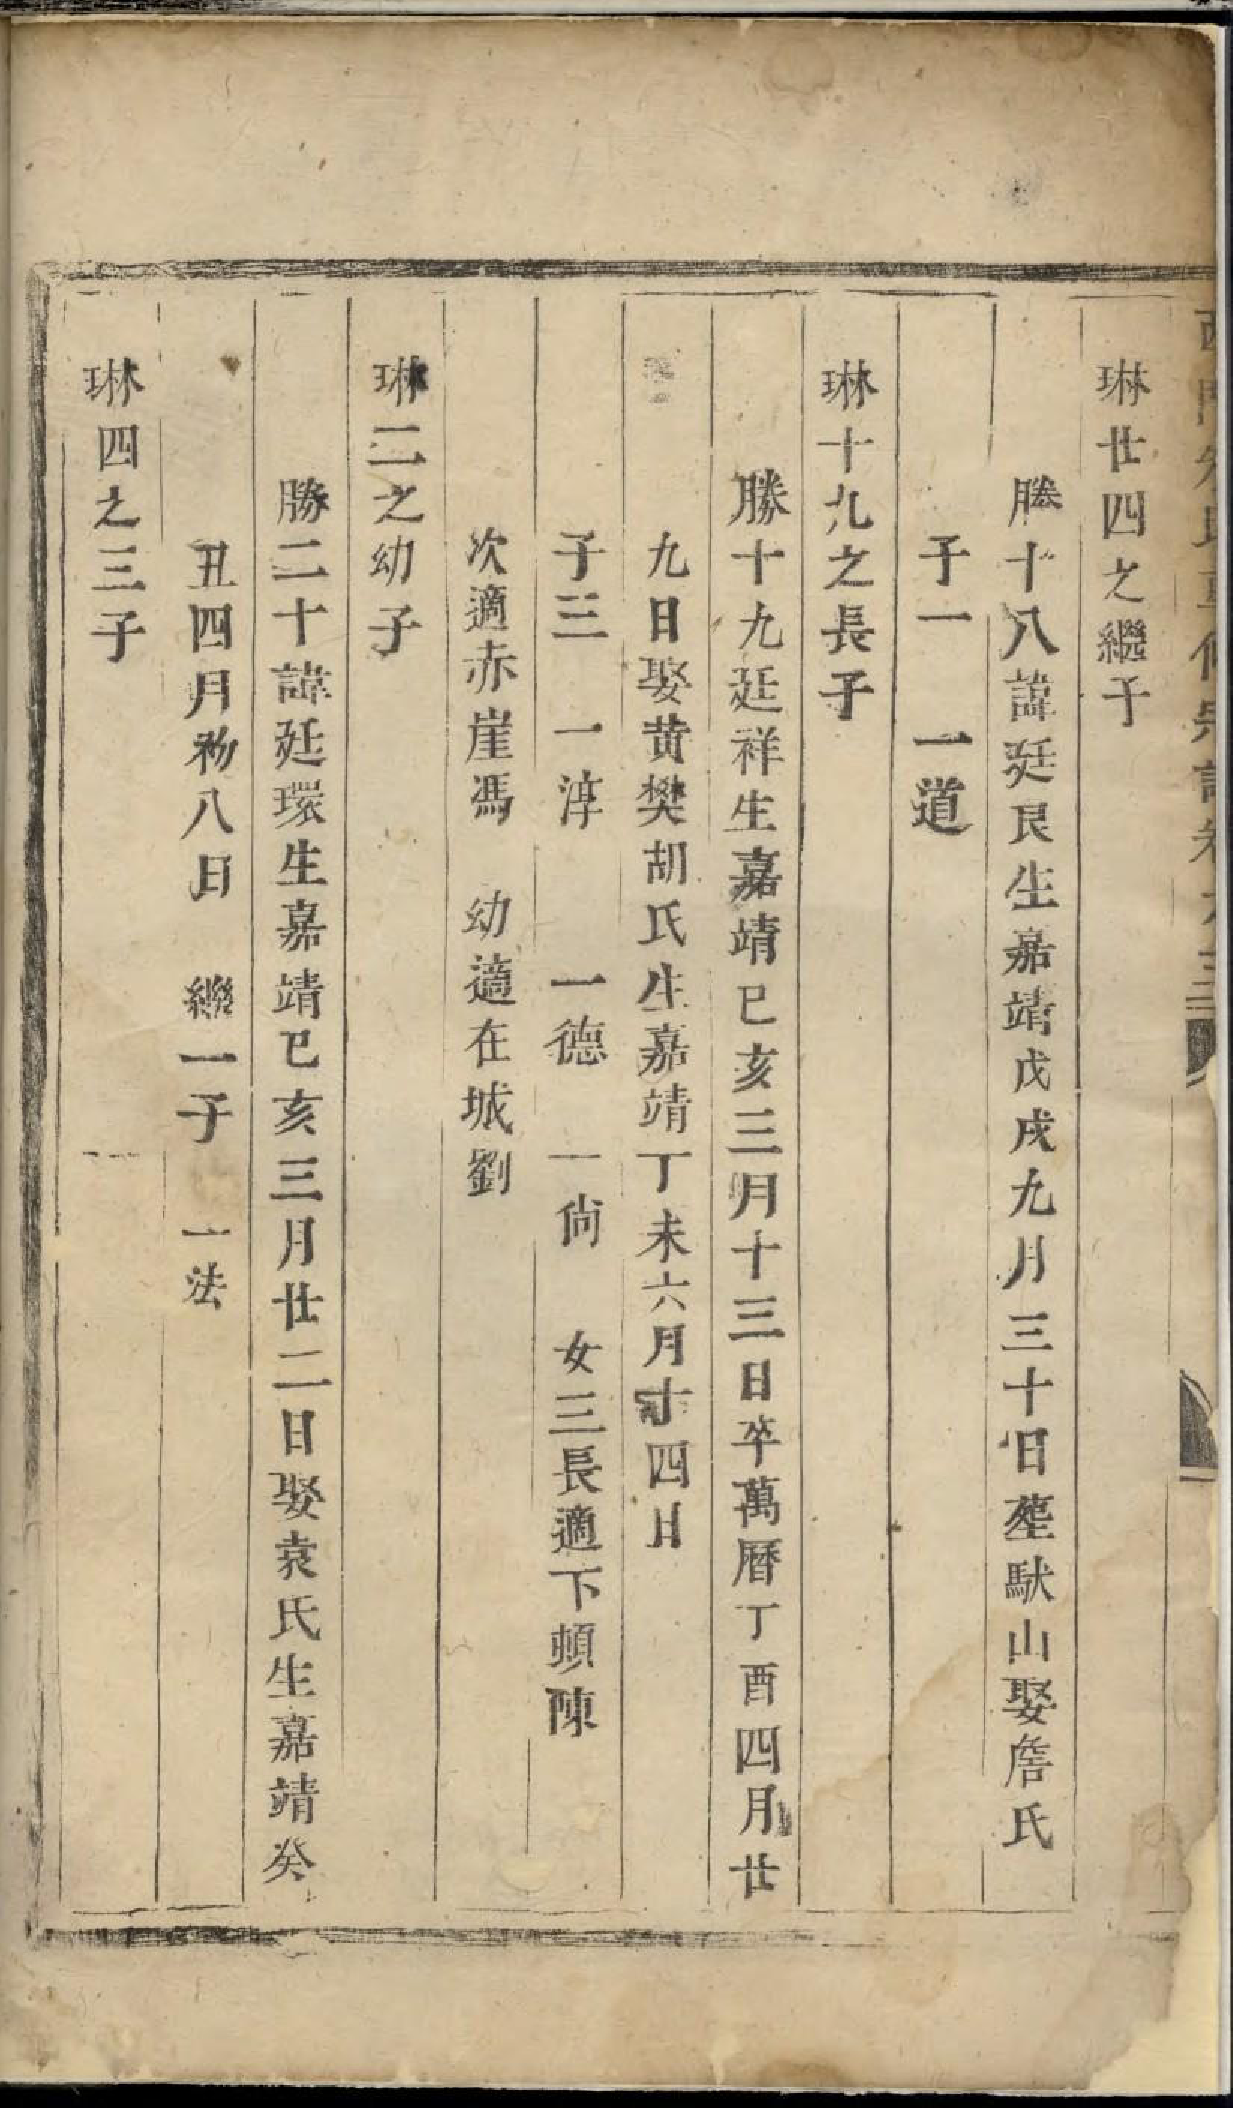 琳廿四之繼子
勝十八諱廷良生嘉靖戊戌九月三十日塟馱山娶詹氏
子一　一道
琳十九之長子
勝十九廷祥生嘉靖已亥三月十三日卒萬曆丁酉四月廿
九日娶黄樊胡氏生嘉靖丁未六月十四日
子三　一淳　一德　一尚　女三長適下頓陳
次適赤崖馮　幼適在城劉
琳二之幼子
勝二十諱廷環生嘉靖已亥三月廿二日娶袁氏生嘉靖癸
丑四月初八日　繼一子　一法
琳四之三子